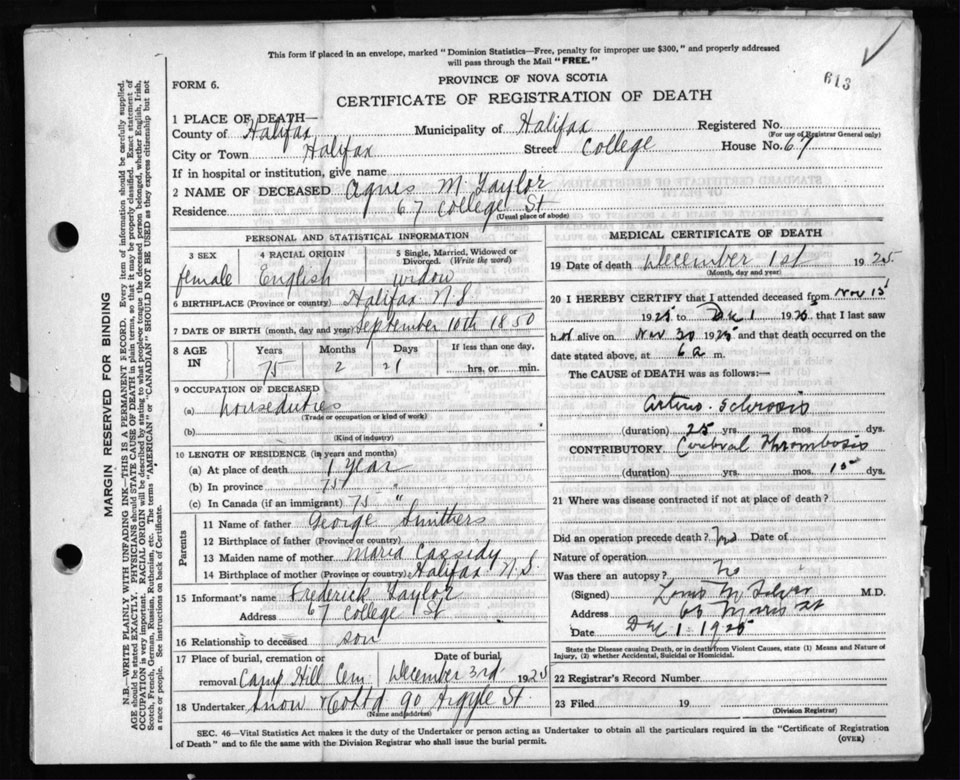 This form if placed in an envelope, marked "Dominion Statistics—Free, penalty for improper use $300," and properly addressed
will pass through the Mail "FREE."
613
FORM 6.
PROVINCE OF NOVA SCOTIA
CERTIFICATE OF REGISTRATION OF DEATH
1 PLACE OF DEATH—
County of Halifax Municipality of Halifax Registered No.
(For use of Registrar General only)
City or Town Halifax Street College House No. 67
If in hospital or institution, give name
2 NAME OF DECEASED Agnes M. Taylor
Residence 67 College St
(Usual place of abode)
PERSONAL AND STATISTICAL INFORMATION
3 SEX 4 RACIAL ORIGIN 5 Single, Married, Widowed or Divorced. (Write the word)
female English widow
6 BIRTHPLACE (Province or country) Halifax N.S.
7 DATE OF BIRTH (month, day and year) September 10th 1850
8 AGE IN Years Months Days If less than one day,
75 2 21 hrs. or min.
9 OCCUPATION OF DECEASED
(a) houseduties
(Trade or occupation or kind of work)
(b)
(Kind of industry)
10 LENGTH OF RESIDENCE (in years and months)
(a) At place of death 1 year
(b) In province 75 "
(c) In Canada (if an immigrant) 75 "
Parents
11 Name of father George Smithers
12 Birthplace of father (Province or country)
13 Maiden name of mother Maria Cassidy
14 Birthplace of mother (Province or country) Halifax N.S.
15 Informant's name Frederick Taylor
Address 67 College St
16 Relationship to deceased son
17 Place of burial, cremation or Date of burial,
removal Camp Hill Cem December 3rd 1925
18 Undertaker Snow & Co Ltd 90 Argyle St
(Name and address)
MEDICAL CERTIFICATE OF DEATH
19 Date of death December 1st 1925
(Month, day and year)
20 I HEREBY CERTIFY that I attended deceased from Nov 15
1925 to Dec 1 1925, that I last saw
her alive on Nov 30 1925 and that death occurred on the
date stated above, at 6 a m.
The CAUSE of DEATH was as follows:—
Arterio-Sclerosis
(duration) 25 yrs. mos. dys.
CONTRIBUTORY Cerebral Thrombosis
(duration) yrs. mos. dys.
21 Where was disease contracted if not at place of death?
Did an operation precede death? No Date of
Nature of operation
Was there an autopsy? No
(Signed) M.D.
Address Morris St
Date Dec 1 1925
State the Disease causing Death, or in death from Violent Causes, state (1) Means and Nature of
Injury, (2) whether Accidental, Suicidal or Homicidal.
22 Registrar's Record Number
23 Filed 19
(Division Registrar)
SEC. 46—Vital Statistics Act makes it the duty of the Undertaker or person acting as Undertaker to obtain all the particulars required in the "Certificate of Registration
of Death" and to file the same with the Division Registrar who shall issue the burial permit.
(OVER)
MARGIN RESERVED FOR BINDING
N.B.—WRITE PLAINLY WITH UNFADING INK—THIS IS A PERMANENT RECORD. Every item of information should be carefully supplied.
AGE should be stated EXACTLY. PHYSICIANS should STATE CAUSE OF DEATH in plain terms, so that it may be properly classified. Exact statement of
OCCUPATION is very important. RACIAL ORIGIN will be described by stating to what people or tongue the deceased person belonged, whether English, Irish,
Scotch, French, German, Russian, Ruthenian, etc. The terms "AMERICAN" or "CANADIAN" SHOULD NOT BE USED as they express citizenship but not
a race or people. See instructions on back of Certificate.